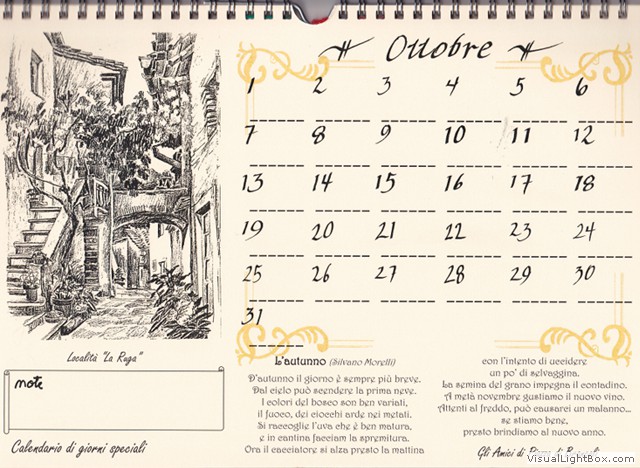 Ottobre
1 2 3 4 5 6
7 8 9 10 11 12
13 14 15 16 17 18
19 20 21 22 23 24
25 26 27 28 29 30
31
Località "La Ruga"
note
Calendario di giorni speciali
L'autunno (Silvano Morelli)
D'autunno il giorno è sempre più breve.
Dal cielo può scendere la prima neve.
I colori del bosco son ben variati,
il fuoco, dei ciocchi arde nei metati.
Si raccoglie l'uva che è ben matura,
e in cantina facciam la spremitura.
Ora il cacciatore si alza presto la mattina
con l'intento di uccidere
un po' di selvaggina.
La semina del grano impegna il contadino.
A metà novembre gustiamo il nuovo vino.
Attenti al freddo, può causarci un malanno...
se stiamo bene,
presto brindiamo al nuovo anno.
Gli Amici di
VisualLightBox.com